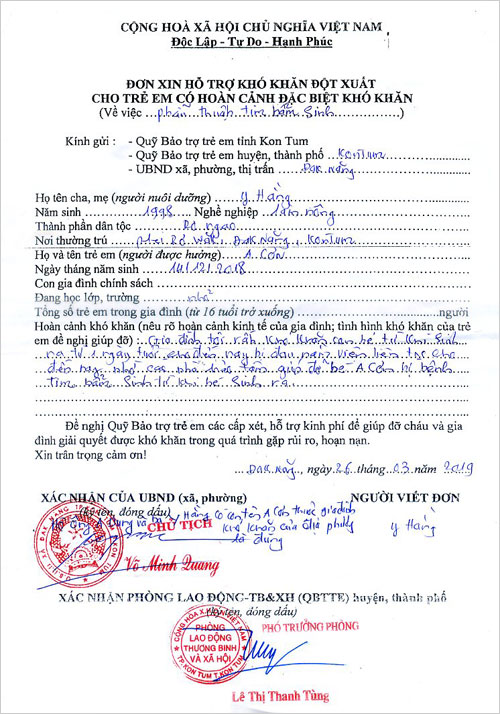 CỘNG HOÀ XÃ HỘI CHỦ NGHĨA VIỆT NAM
Độc Lập - Tự Do - Hạnh Phúc
ĐƠN XIN HỖ TRỢ KHÓ KHĂN ĐỘT XUẤT
CHO TRẺ EM CÓ HOÀN CẢNH ĐẶC BIỆT KHÓ KHĂN
(Về việc ...phẫu thuật tim bẩm sinh...)
Kính gửi : - Quỹ Bảo trợ trẻ em tỉnh Kon Tum
- Quỹ Bảo trợ trẻ em huyện, thành phố ..KonTum..
- UBND xã, phường, thị trấn ...Đak Năng...
Họ tên cha, mẹ (người nuôi dưỡng) ...Y Hằng...
Năm sinh ...1998... Nghề nghiệp ...làm nông...
Thành phần dân tộc ...Rơ ngao...
Nơi thường trú ...Rơ Wăk, Đak Năng, KonTum
Họ và tên trẻ em (người được hưởng)...A Côn...
Ngày tháng năm sinh ...14/12/2018...
Con gia đình chính sách ...
Đang học lớp, trường ...nhỏ...
Tổng số trẻ em trong gia đình (từ 16 tuổi trở xuống)...người
Hoàn cảnh khó khăn (nêu rõ hoàn cảnh kinh tế của gia đình; tình hình khó khăn của trẻ
em đề nghị giúp đỡ) : Gia đình tôi rất khó khăn con bé từ khi sinh
ra từ 1 ngày tuổi cho đến nay bị đau nằm viện liên tục cho
đến nay nhờ các nhà hảo tâm giúp đỡ bé A Côn bị bệnh
tim bẩm sinh từ khi bé sinh ra.
Đề nghị Quỹ Bảo trợ trẻ em các cấp xét, hỗ trợ kinh phí để giúp đỡ cháu và gia
đình giải quyết được khó khăn trong quá trình gặp rủi ro, hoạn nạn.
Xin trân trọng cảm ơn!
...Đak Năng, ngày 26 tháng 03 năm 2019
XÁC NHẬN CỦA UBND (xã, phường) NGƯỜI VIẾT ĐƠN
(ký tên, đóng dấu)
Hằng có con tên A Côn thuộc gia đình
CHỦ TỊCH khó khăn của
là đúng
Y Hằng
Võ Minh Quang
XÁC NHẬN PHÒNG LAO ĐỘNG-TB&XH (QBTTE) huyện, thành phố
(ký tên, đóng dấu)
PHÓ TRƯỞNG PHÒNG
PHÒNG
LAO ĐỘNG
THƯƠNG BINH
VÀ XÃ HỘI
Lê Thị Thanh Tùng